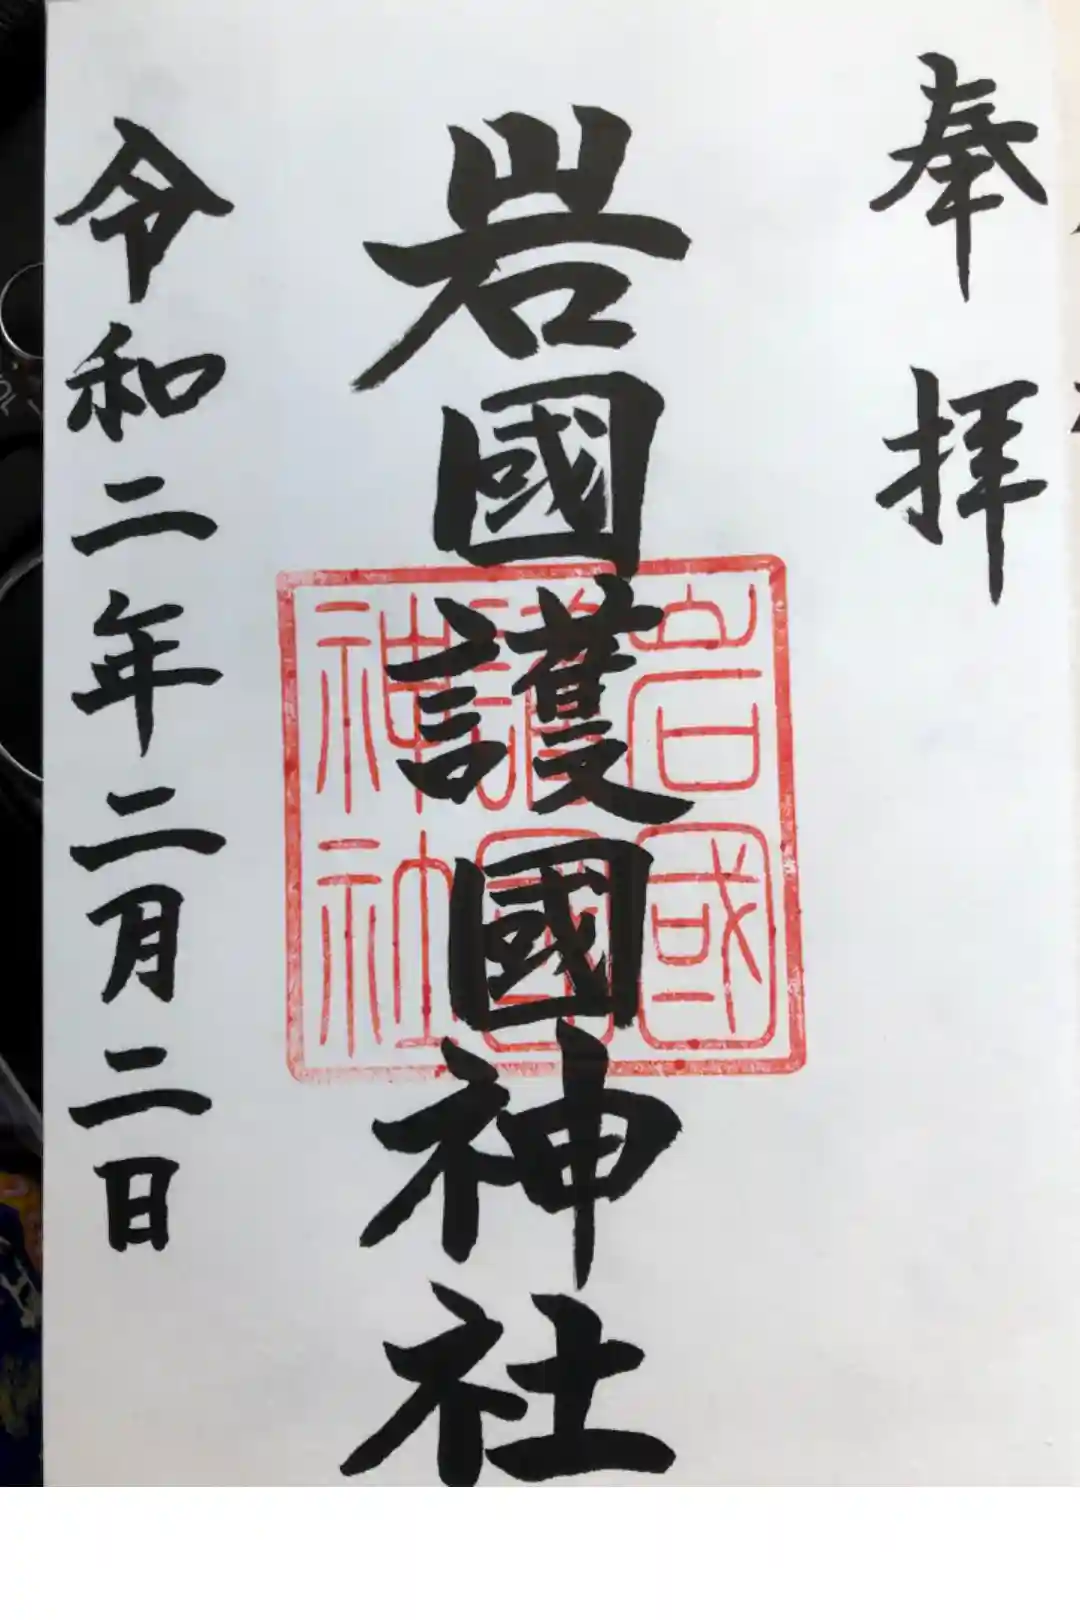 奉拝
岩國護國神社
岩國
護國
神社
令和二年二月二日